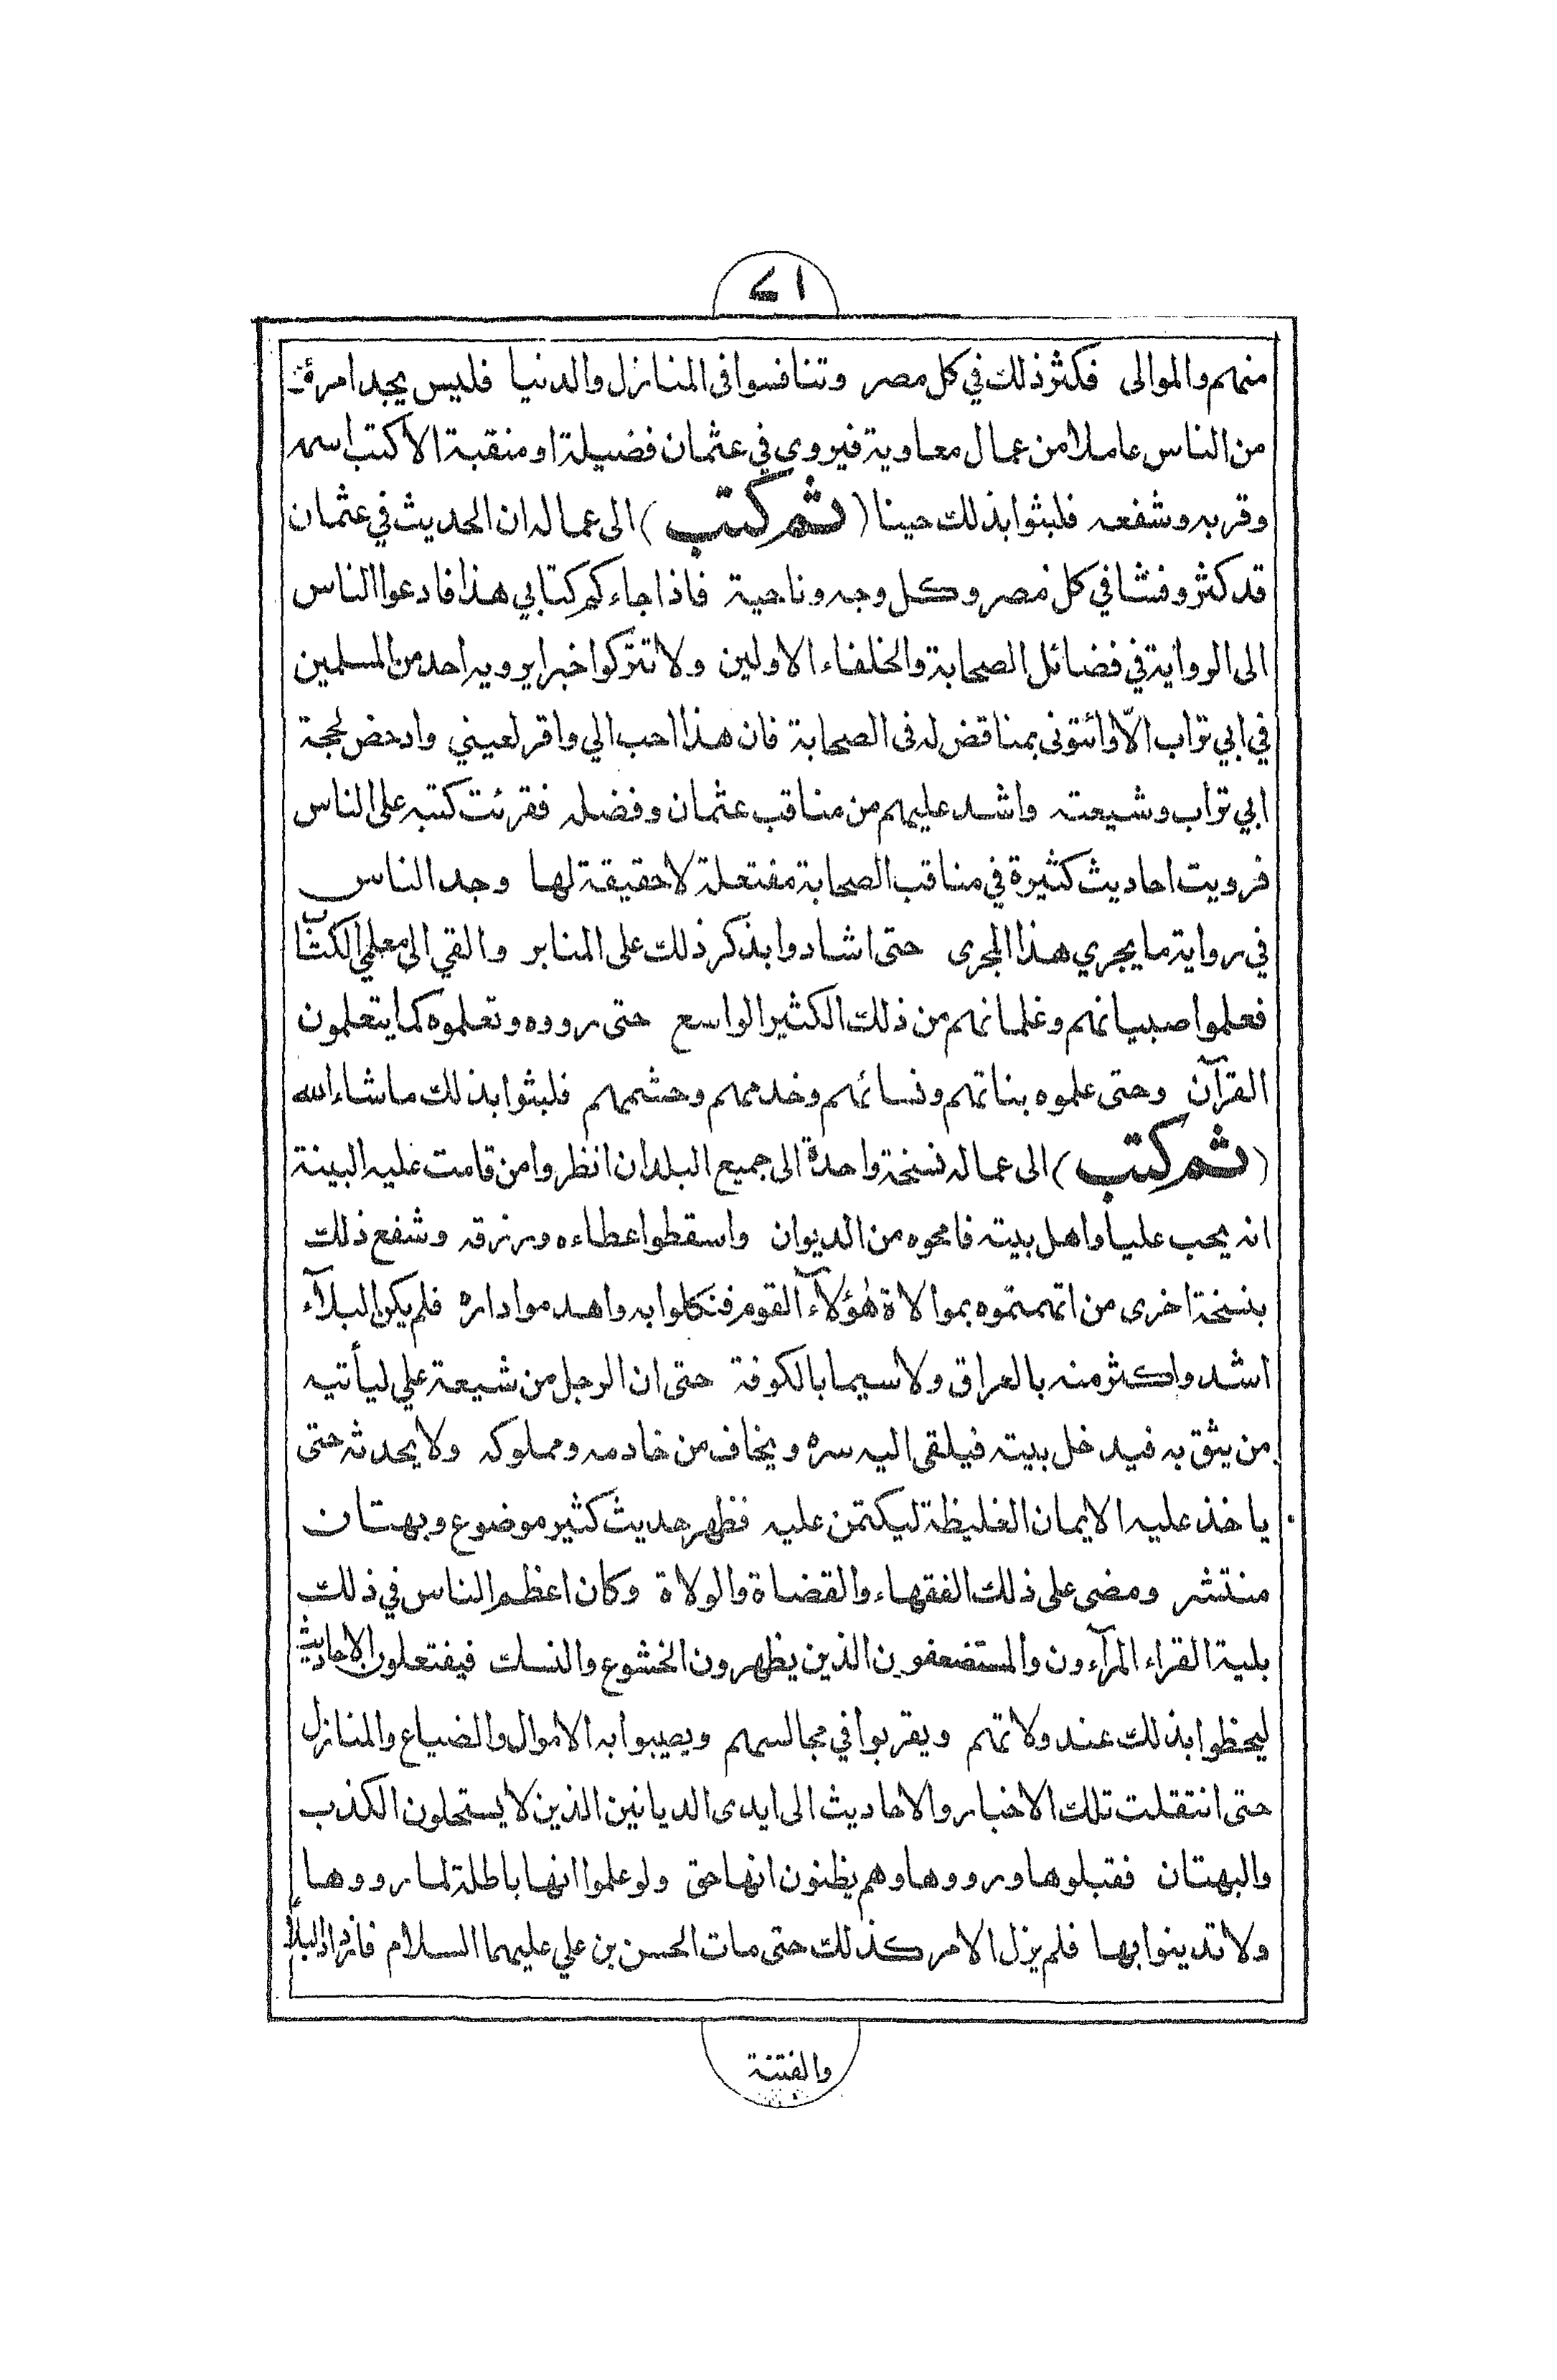 منهم والموالى فكثر ذلك في كل مصر وتنافسوا فى المنازل والدنيا فليس يجد امرء
من الناس عاملا من عمال معاوية فيروى في عثمان فضيلة او منقبة الا كتب اسمه
وقربه وشفعه فلبثوا بذلك حينا (ثم كتب) الى عماله ان الحديث في عثمان
قد كثر وفشا في كل مصر وكل وجه وناحية فاذا جاءكم كتابي هذا فادعوا الناس
الى الرواية في فضائل الصحابة والخلفاء الاولين ولا تتركوا خبرا يرويه احد من المسلمين
في ابي تراب الّا وائتونى بمناقض له فى الصحابة فان هذا احب الي واقر لعيني وادحض لحجة
ابي تراب وشيعته واشد عليهم من مناقب عثمان وفضله فقرئت كتبه على الناس
فرويت احاديث كثيرة في مناقب الصحابة مفتعلة لا حقيقة لها وجد الناس
في رواية ما يجري هذا المجرى حتى اشادوا بذكر ذلك على المنابر والقي الى معلمي الكتّاب
فعلموا صبيانهم وغلمانهم من ذلك الكثير الواسع حتى رووه وتعلموه كما يتعلمون
القرآن وحتى علموه بناتهم ونسائهم وخدمهم وحشمهم فلبثوا بذلك ما شاء الله
(ثم كتب) الى عماله نسخة واحدة الى جميع البلدان انظروا من قامت عليه البينة
انه يحب عليا واهل بيته فامحوه من الديوان واسقطوا عطاءه ورزقه وشفع ذلك
بنسخة اخرى من اتهمتموه بموالاة هؤلآء القوم فنكلوا به واهدموا داره فلم يكن البلآء
اشد واكثر منه بالعراق ولا سيما بالكوفة حتى ان الرجل من شيعة علي ليأتيه
من يثق به فيدخل بيته فيلقى اليه سره ويخاف من خادمه ومملوكه ولا يحدثه حتى
ياخذ عليه الايمان الغليظة ليكتمن عليه فظهر حديث كثير موضوع وبهتان
منتشر ومضى على ذلك الفقهاء والقضاة والولاة وكان اعظم الناس في ذلك
بلية القراء المرآءون والمستضعفون الذين يظهرون الخشوع والنسك فيفتعلون الاحاديث
ليحظوا بذلك عند ولاتهم ويقربوا في مجالسهم ويصيبوا به الاموال والضياع والمنازل
حتى انتقلت تلك الاخبار والاحاديث الى ايدى الديانين الذين لا يستحلون الكذب
والبهتان فقبلوها ورووها وهم يظنون انها حق ولو علموا انها باطلة لما رووها
ولا تدينوا بها فلم يزل الامر كذلك حتى مات الحسن بن علي عليهما السلام فازداد البلأ
والفتنة